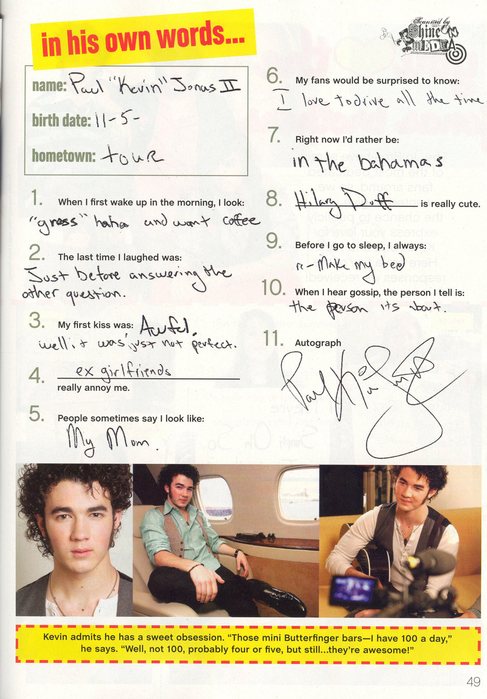 in his own words...
Scanned by
Shine On
name: Paul "Kevin" Jonas II
birth date: 11-5-
hometown: tour
1. When I first wake up in the morning, I look:
"gross" haha and want coffee
2. The last time I laughed was:
Just before answering the
other question.
3. My first kiss was: Awful.
well, it was just not perfect.
4. ex girlfriends
really annoy me.
5. People sometimes say I look like:
My Mom.
6. My fans would be surprised to know:
I love to drive all the time
7. Right now I'd rather be:
in the bahamas
8. Hilary Duff is really cute.
9. Before I go to sleep, I always:
re-Make my bed
10. When I hear gossip, the person I tell is:
the person its about.
11. Autograph
Kevin admits he has a sweet obsession. "Those mini Butterfinger bars—I have 100 a day,"
he says. "Well, not 100, probably four or five, but still...they're awesome!"
49